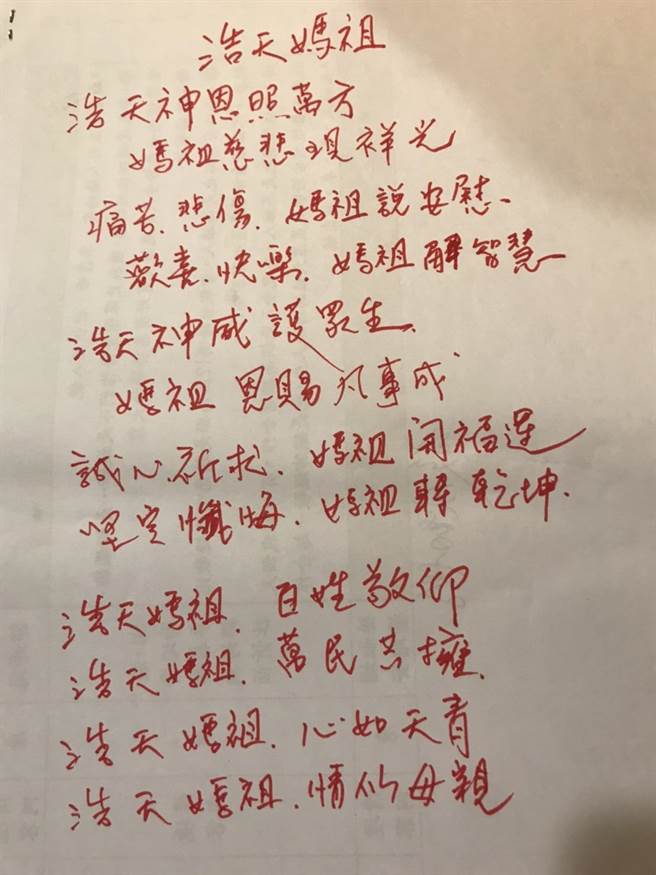 浩天媽祖
浩天神恩照萬方
媽祖慈悲現祥光
痛苦、悲傷、媽祖說安慰、
歡喜、快樂、媽祖解智慧
浩天神威護眾生、
媽祖恩賜凡事成
誠心祈求、媽祖開福運
堅定懺悔、媽祖轉乾坤、
浩天媽祖、百姓敬仰
浩天媽祖、萬民共擁、
浩天媽祖、心如天青
浩天媽祖、情似母親